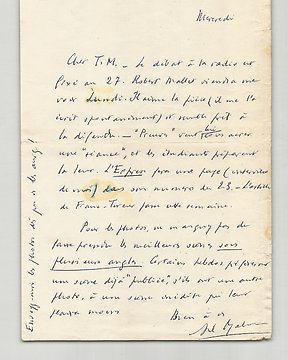 Mercredi
Cher T.M. _ Le débat à la radio est
fixé au 27. Robert Mallet viendra me
voir Lundi. Il aime la pièce (il me l'a
écrit spontanément) et semble prêt à
la défendre _ "Preuves" veut lui aussi avoir
une "séance", et les étudiants préparent
la leur. L'Express fera une page (interview
de moi) dans son numéro du 23. L'article
de Franc-Tireur fera cette semaine.
Pour les photos, n'
faire prendre les meilleures scènes sous
plusieurs angles. Certains hebdos préféreront
une scène déjà "publiée", s'ils ont une autre
photo, à une scène inédite qui leur
plaira moins
Bien à vs
Envoyez-moi les photos dès que vs les aurez !